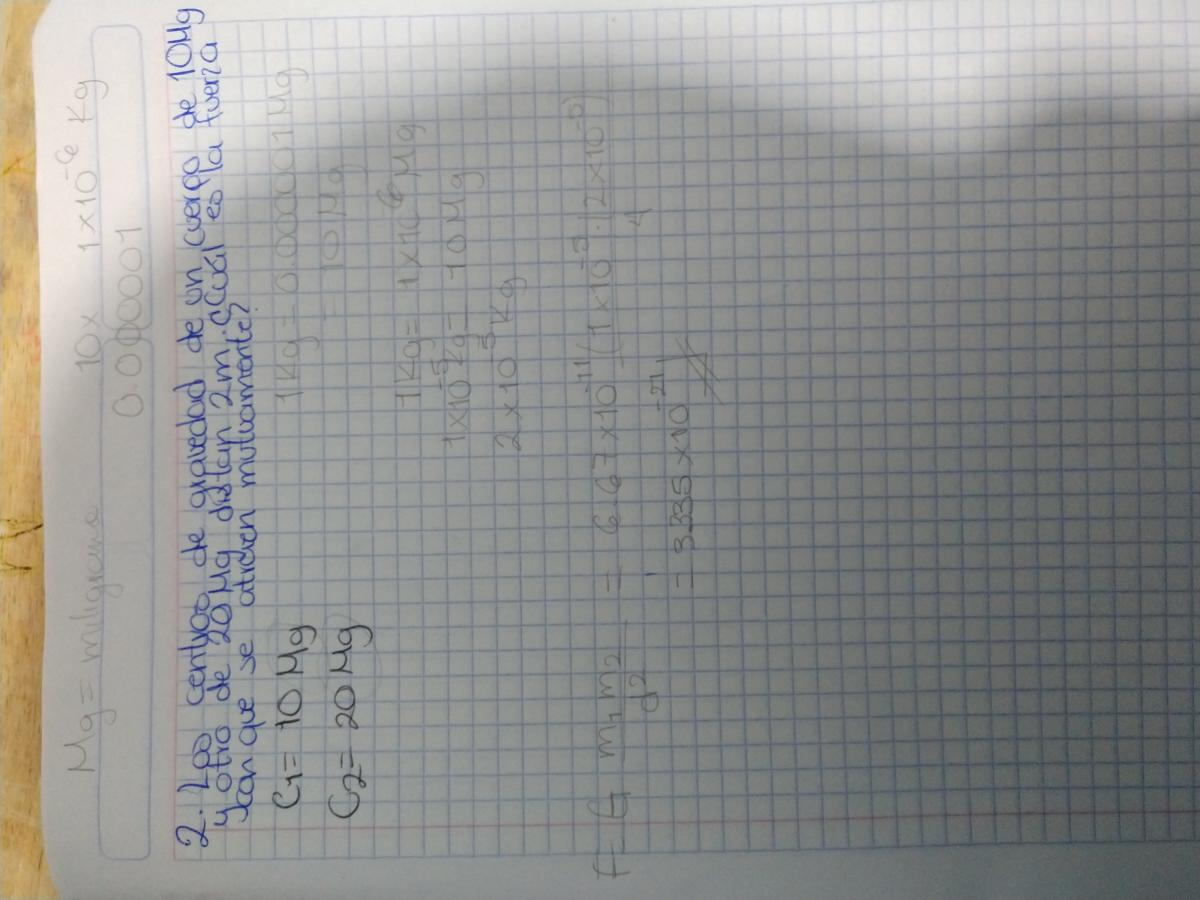 Mg = miligramo 10x 1x10⁻⁶ Kg
0.000001
2. Los centros de gravedad de un cuerpo de 10 Mg
y otro de 20 Mg distan 2m. ¿Cuál es la fuerza
con que se atraen mutuamente?
C₁= 10 Mg 1Kg = 0.000001 Mg
C₂= 20 Mg = 10 Mg
1Kg = 1x10⁶ Mg
1x10⁻⁵ Kg = 10 Mg
2x10⁻⁵ Kg
F= G m₁ m₂ / d² = 6.67x10⁻¹¹ (1x10⁻⁵)(2x10⁻⁵) / 4
= 3.335x10⁻²¹